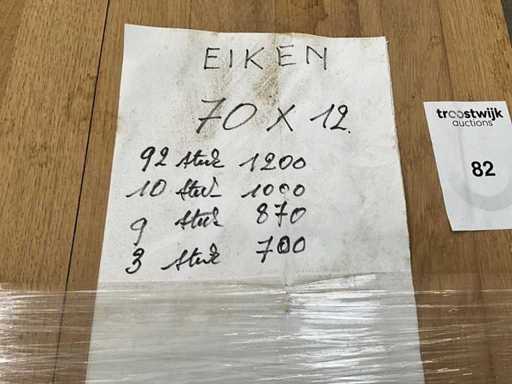 EIKEN
70 X 12
92 stuk 1200
10 stuk 1000
9 stuk 870
3 stuk 700
troostwijk
auctions
82